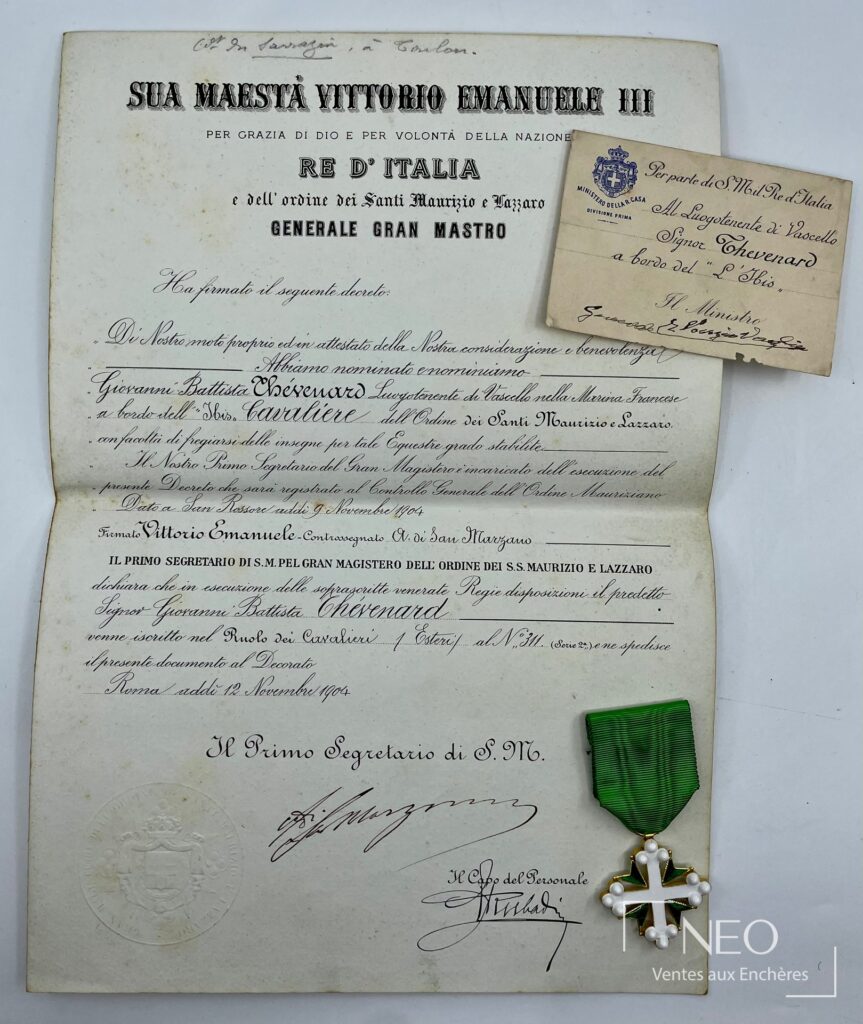 à Toulon.
SUA MAESTÀ VITTORIO EMANUELE III
PER GRAZIA DI DIO E PER VOLONTÀ DELLA NAZIONE
RE D'ITALIA
e dell'ordine dei Santi Maurizio e Lazzaro
GENERALE GRAN MASTRO
Ha firmato il seguente decreto:
„ Di Nostro moto proprio ed in attestato della Nostra considerazione e benevolenza
Abbiamo nominato e nominiamo
Giovanni Battista Thévenard Luogotenente di Vascello nella Marina Francese
„ a bordo dell' "Ibis„ Cavaliere dell'Ordine dei Santi Maurizio e Lazzaro
„ con facoltà di fregiarsi delle insegne per tale Equestre grado stabilite
„ Il Nostro Primo Segretario del Gran Magistero è incaricato dell'esecuzione del
„ presente Decreto che sarà registrato al Controllo Generale dell'Ordine Mauriziano
„ Dato a San Rossore addì 9 Novembre 1904
Firmato Vittorio Emanuele - Contrassegnato A. di San Marzano
IL PRIMO SEGRETARIO DI S.M. PEL GRAN MAGISTERO DELL'ORDINE DEI S.S. MAURIZIO E LAZZARO
dichiara che in esecuzione delle soprascritte venerate Regie disposizioni il predetto
Signor Giovanni Battista Thévenard
venne iscritto nel Ruolo dei Cavalieri (Esteri) al N.° 311. (Serie 2ª) e ne spedisce
il presente documento al Decorato
Roma addì 12 Novembre 1904
Il Primo Segretario di S. M.
Il Capo del Personale
MINISTERO DELLA R. CASA
DIVISIONE PRIMA
Per parte di S. M. il Re d'Italia
Al Luogotenente di Vascello
Signor Thevenard
a bordo del "L'Ibis„
Il Ministro
NEO
Ventes aux Enchères